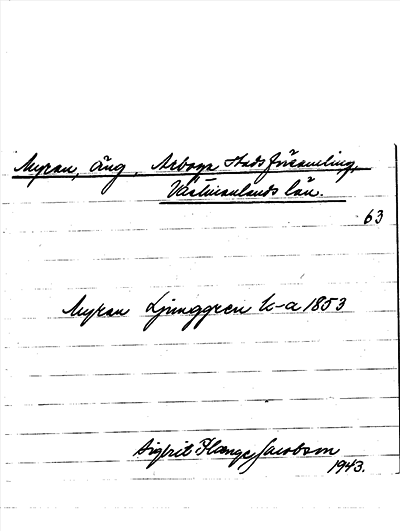 Myran, äng, Arboga Stadsförsamling,
Västmanlands län.
63
Myran Ljunggren k-a 1853
Sigfrid Hange Jacobson
1943.